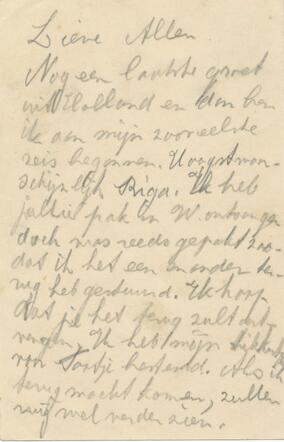 Lieve Allen
Nog een laatste groet
uit Holland en dan ben
ik aan mijn zooveelste
reis begonnen. Hoogstwaar-
schijnlijk Riga. Ik heb
jullie pak in W. ontvangen
doch was reeds gepakt zoo-
dat ik het een en ander te-
rug heb gestuurd. Ik hoop
dat je het terug zult ont-
vangen. Ik heb mijn
van Jortje hersteld. Als ik
terug mocht komen, zullen
wij wel verder zien.